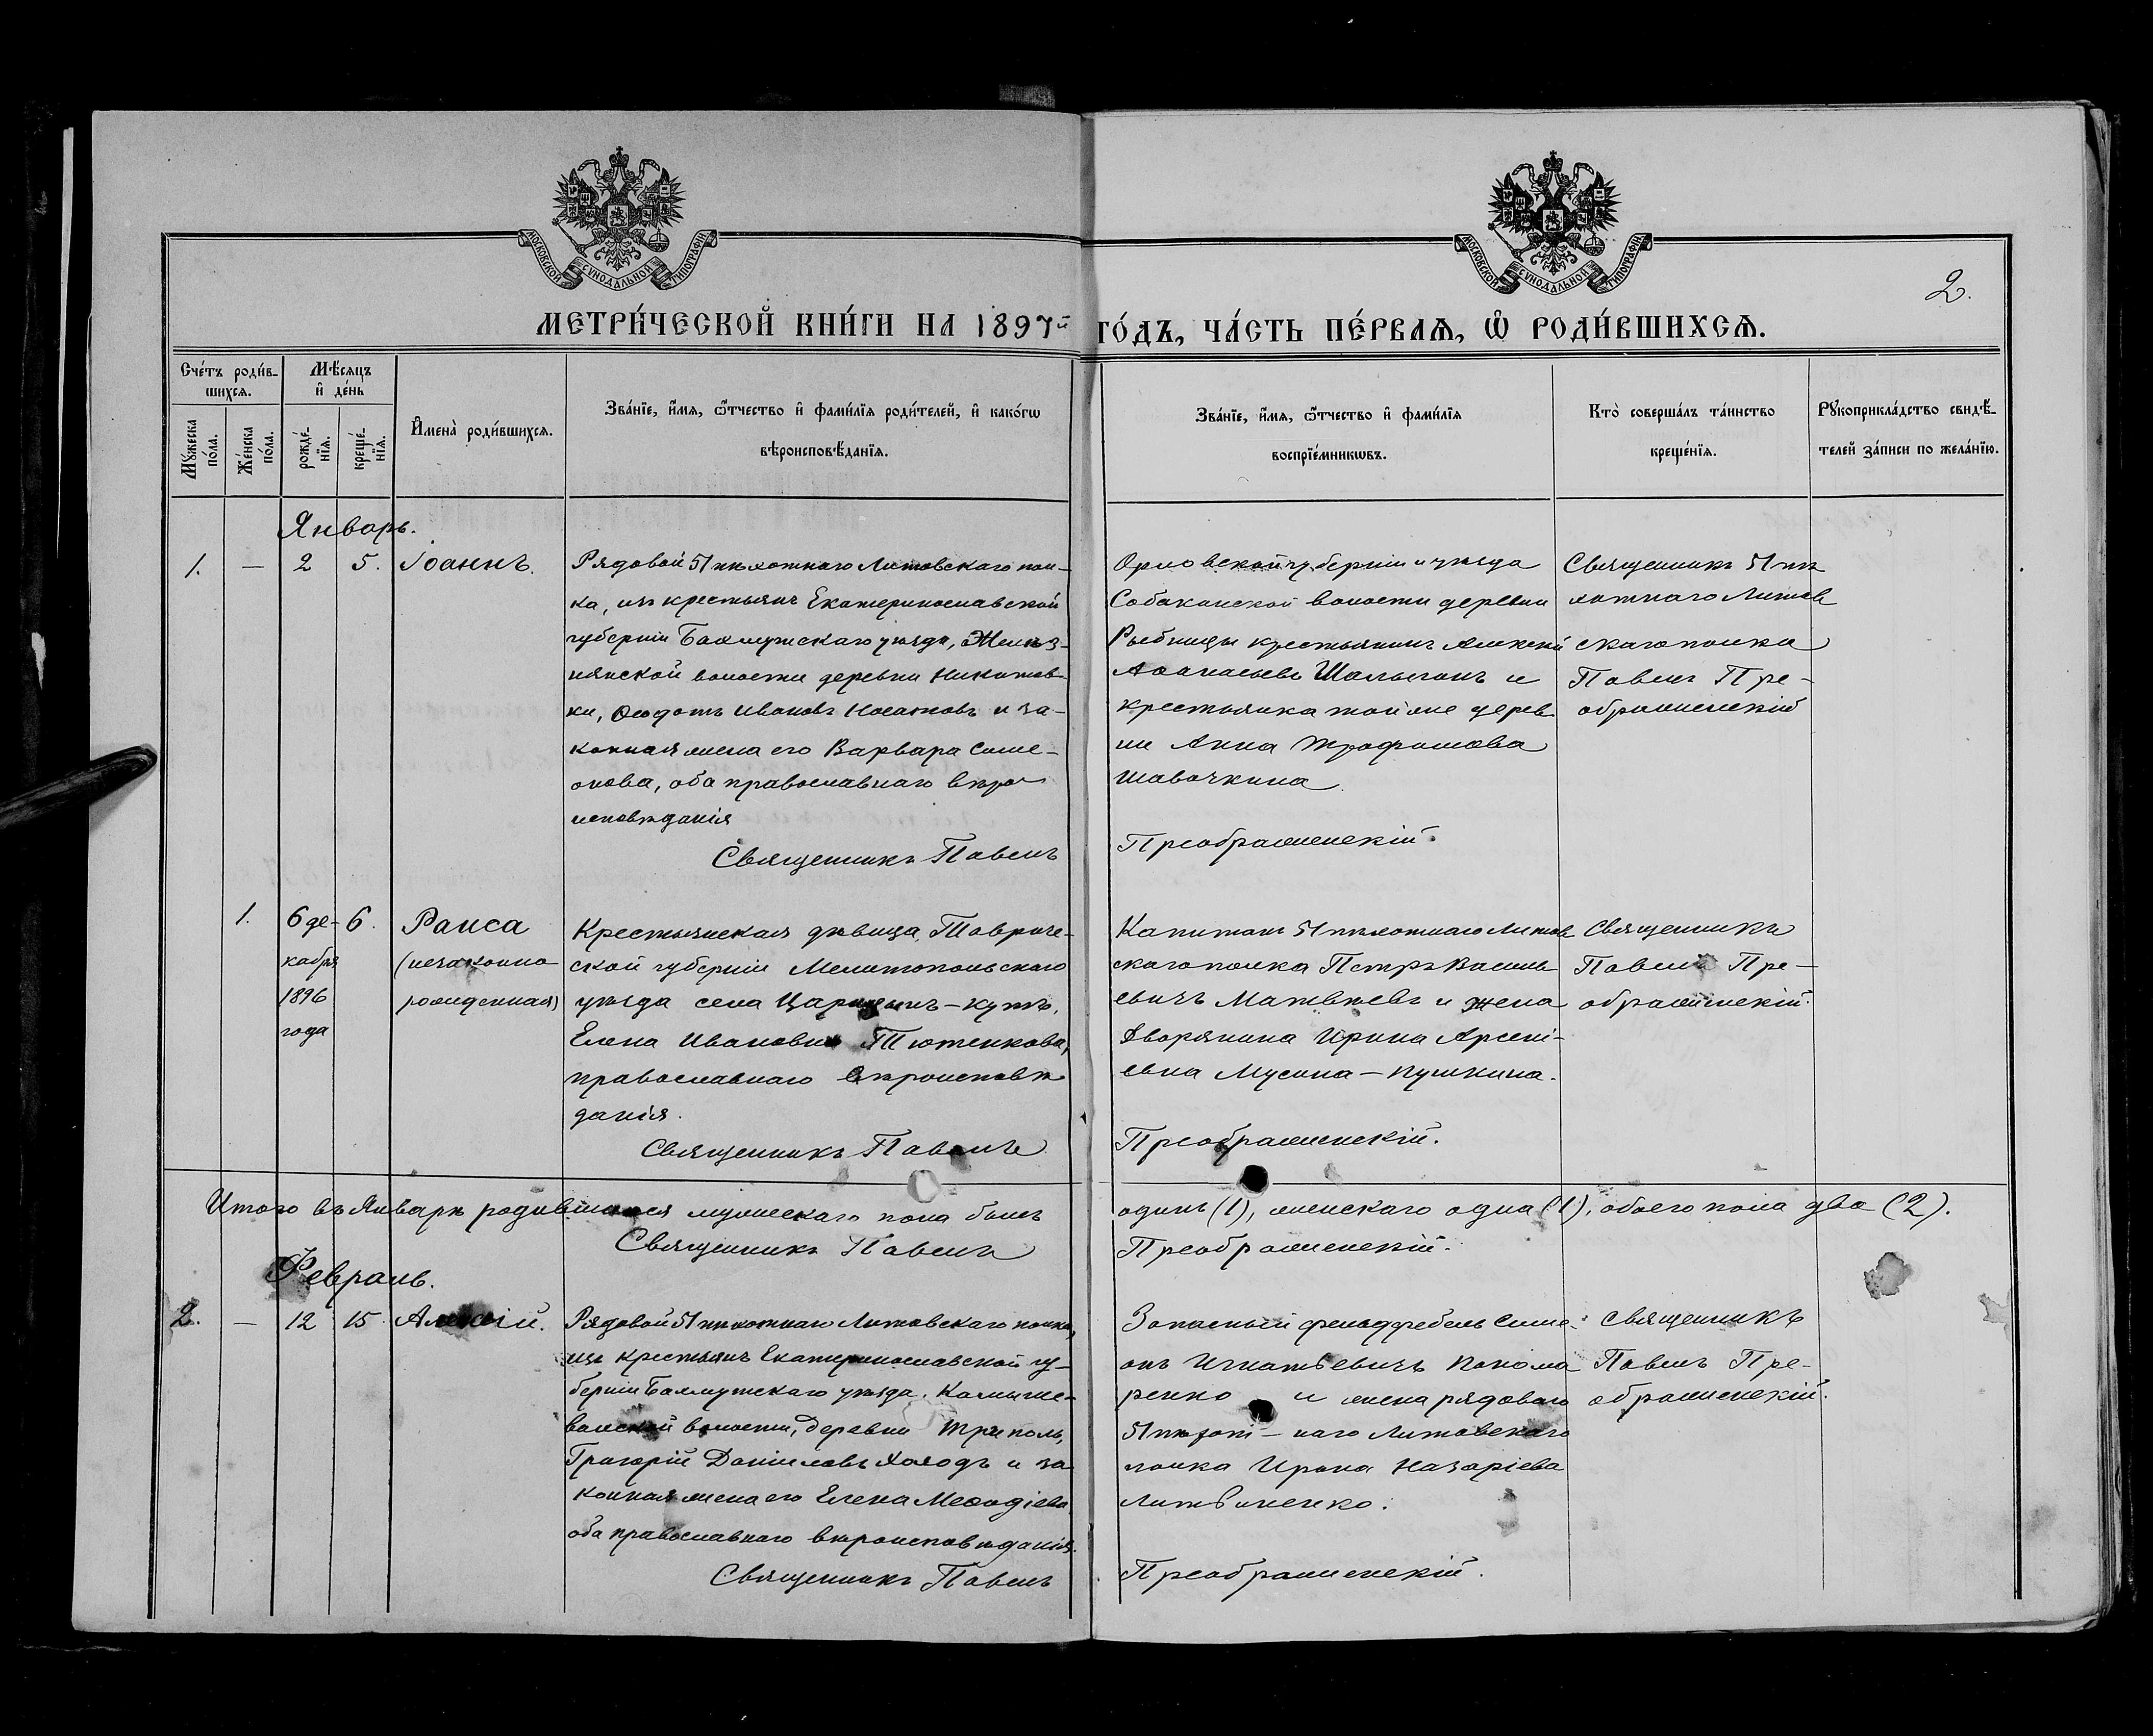 МОСКОВСКОЙ СѴНОДАЛЬНОЙ ТИПОГРАФІИ
МОСКОВСКОЙ СѴНОДАЛЬНОЙ ТИПОГРАФІИ
2.
МЕТРИ́ЧЕСКОЙ КНИ́ГИ НА 1897й ГО́ДЪ, ЧА́СТЬ ПЕ́РВАѦ, Ѽ РОДИ́ВШИХСѦ.
Сче́тъ роди́в-
шихсѧ.
Мꙋ́жеска по́ла.
Же́нска по́ла.
Мѣ́сѧцъ
и҆ де́нь
рожде́-
нїѧ.
креще́-
нїѧ.
И҆мена̀ роди́вшихсѧ.
Зва́нїе, и҆́мѧ, ѻ҆́тчество и҆ фами́лїѧ роди́телей, и҆ како́гѡ
вѣроисповѣ́данїѧ.
Зва́нїе, и҆́мѧ, ѻ҆́тчество и҆ фами́лїѧ
воспрїе́мникѡвъ.
Кто̀ соверша́лъ та́инство
креще́нїѧ.
Рꙋкоприкла́дство свидѣ́-
телей за́писи по жела́нїю.
Январь.
1. — 2 5. Іоаннъ.
Рядовой 51 пѣхотнаго Литовскаго пол-
ка, изъ крестьянъ Екатеринославской
губерніи Бахмутскаго уѣзда, Желѣз-
нянской волости деревни Никитов-
ки, Ѳеодотъ Ивановъ Носатовъ и за-
конная жена его Варвара Симе-
онова, оба православнаго вѣро-
исповѣданія
Священникъ Павелъ
Орловской губерніи и уѣзда
Собакинской волости деревни
Рыбницы крестьянинъ Алексѣй
Аѳанасьевъ Шалыгинъ и
крестьянка той же дерев
ни Анна Трофимова
Шавочкина
Преображенскій.
Священникъ 51 пѣ
хотнаго Литов
скаго полка
Павелъ Пре-
ображенскій
1. 6 де- 6. Раиса
кабря (незаконно
1896 рожденная)
года
Крестьянская дѣвица, Тавриче-
ской губерніи Мелитопольскаго
уѣзда села Царицынъ-Кутъ,
Елена Ивановна Тютенкова,
православнаго вѣроисповѣ
данія.
Священникъ Павелъ
Капитанъ 51 пѣхотнаго Литов
скаго полка Петръ Василь
евичъ Матвѣевъ и жена
дворянина Ирина Арсені-
евна Мусина-Пушкина.
Преображенскій.
Священникъ
Павелъ Пре-
ображенскій.
Итого въ Январѣ родившихся мужескаго пола былъ одинъ (1), женскаго одна (1), обоего пола два (2).
Священникъ Павелъ Преображенскій.
Февраль.
2. — 12 15 Алексій.
Рядовой 51 пѣхотнаго Литовскаго полка,
изъ крестьянъ Екатеринославской гу-
берніи Бахмутскаго уѣзда, Камыше-
вахской волости, деревни Триполь,
Григорій Даніиловъ Холодъ и за
конная жена его Елена Меѳодіева,
оба православнаго вѣроисповѣданія.
Священникъ Павелъ
Запасный фельдфебель Симе-
онъ Игнатьевичъ Понома
ренко и жена рядоваго
51 пѣхот-наго Литовскаго
полка Ирина Назаріева
Литвиненко.
Преображенскій.
Священникъ
Павелъ Пре-
ображенскій.